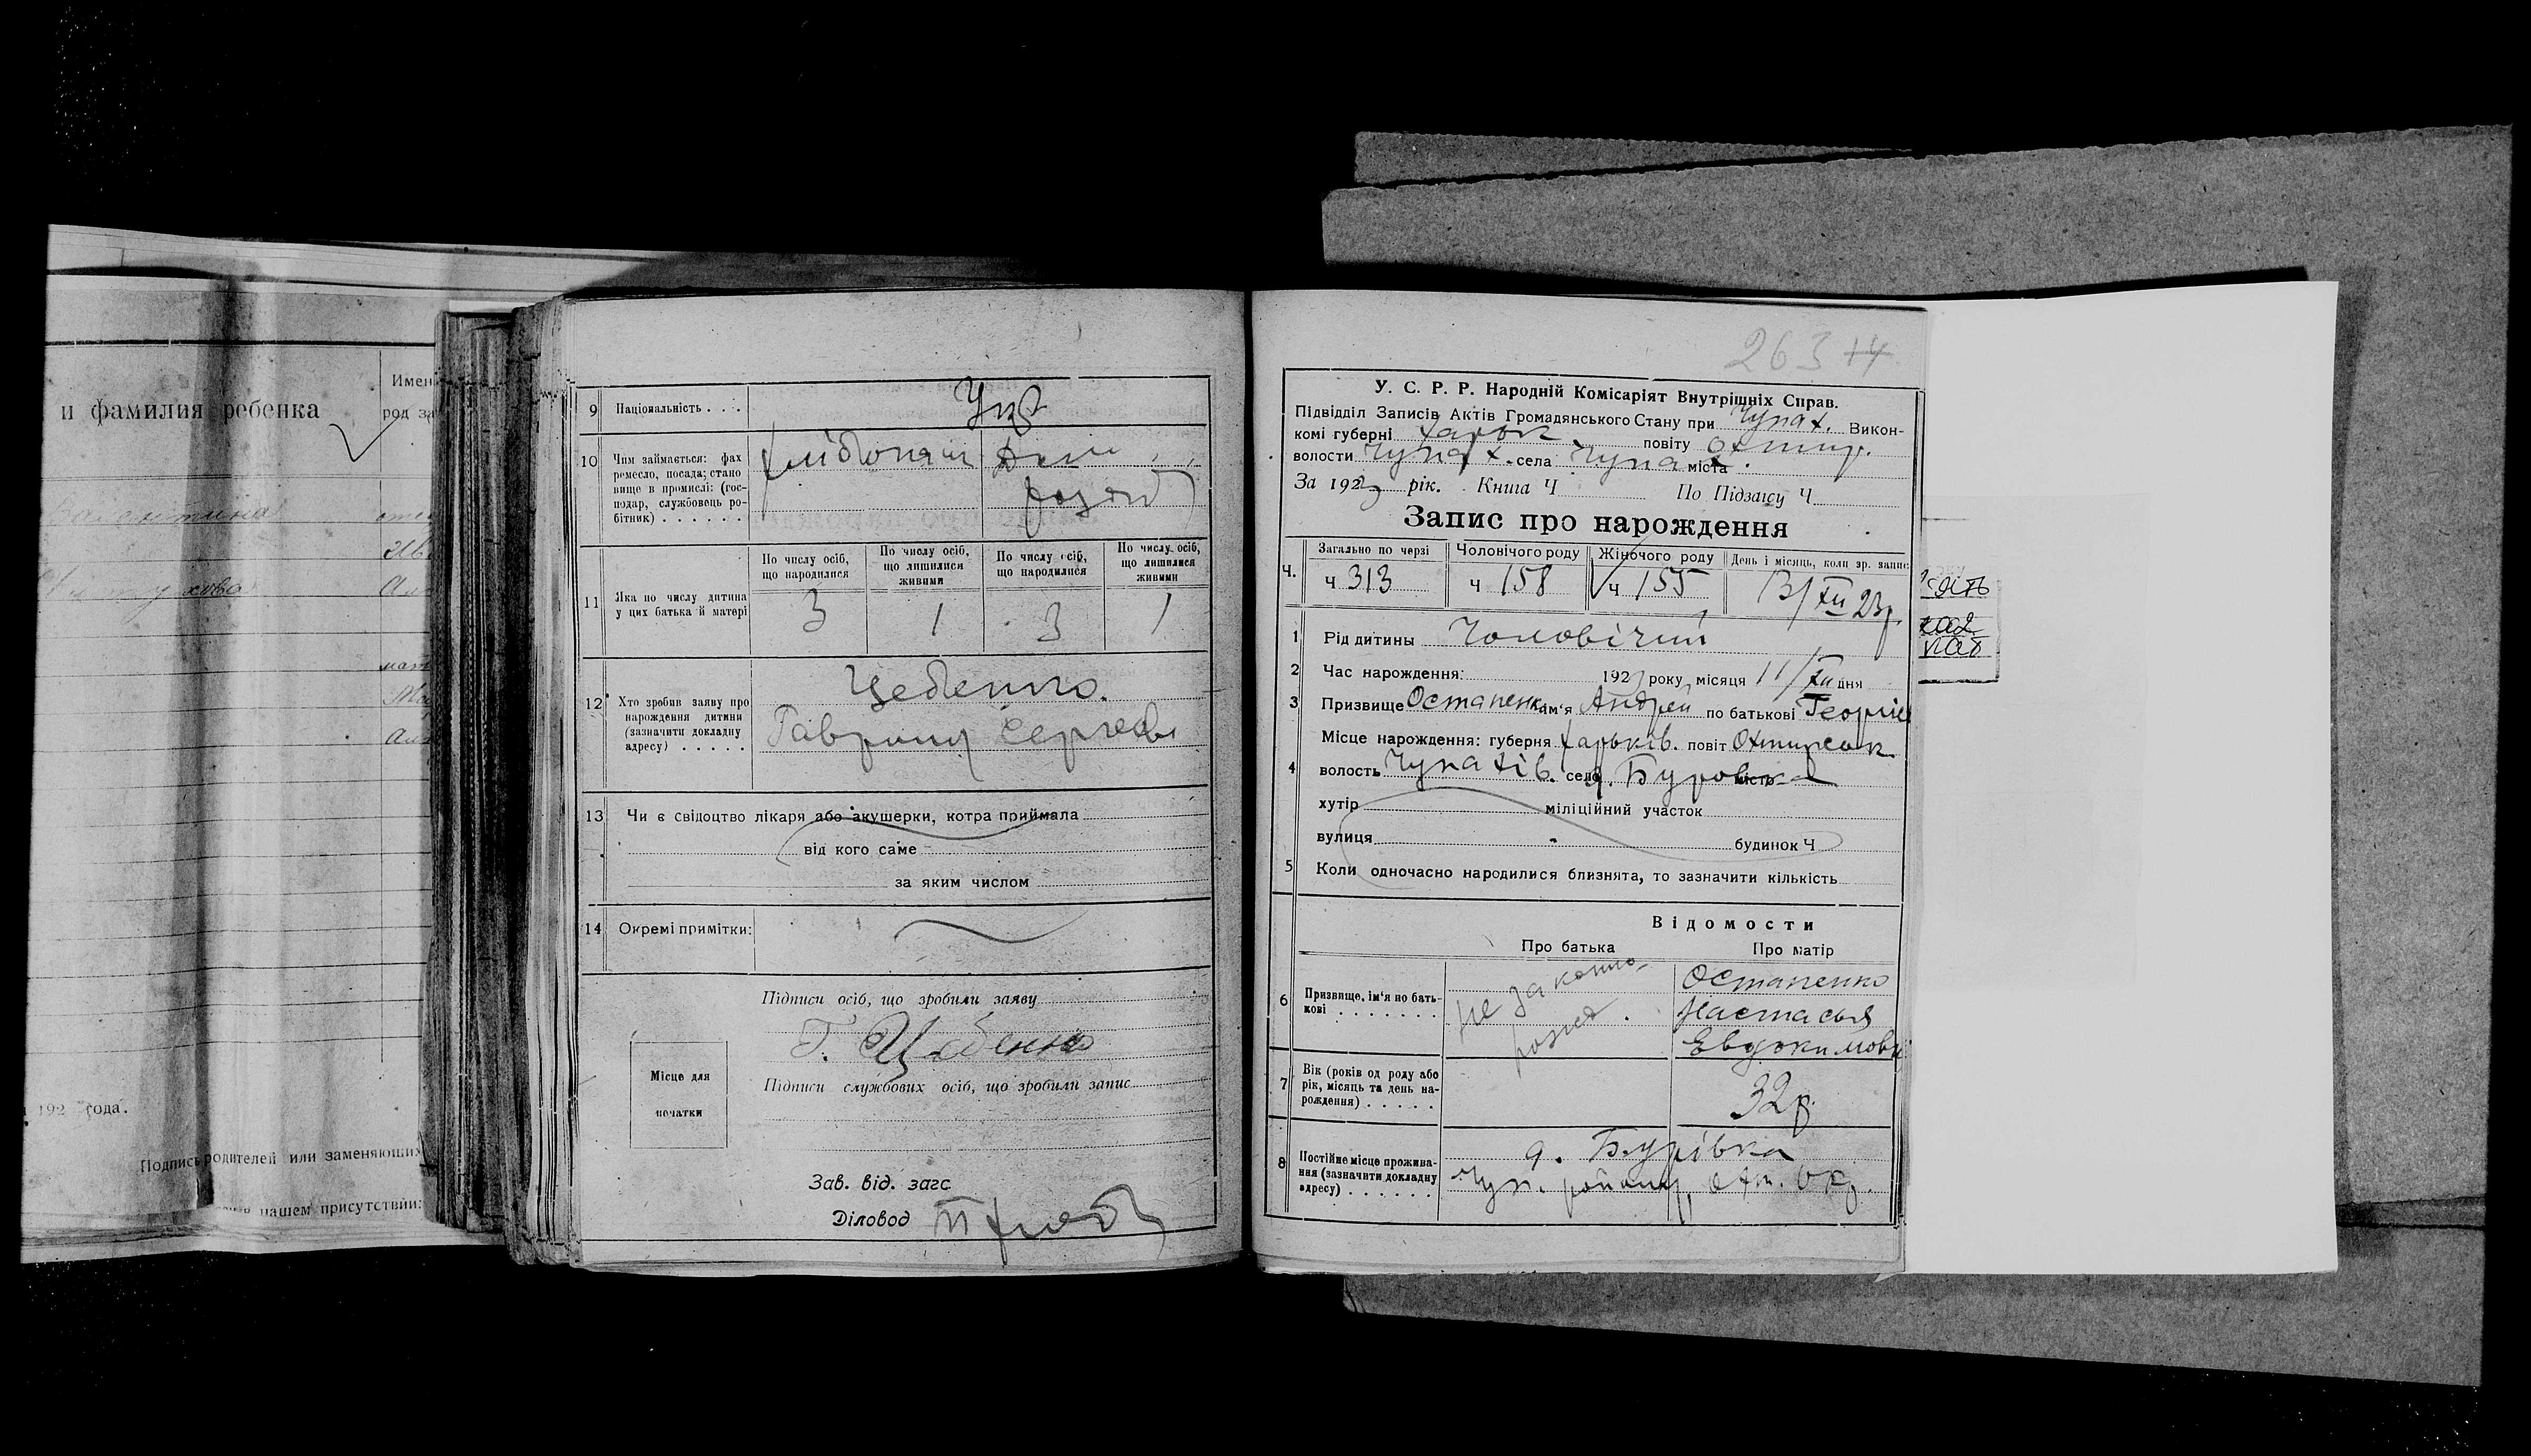 и фамилия ребенка
Имен
род за
192 года.
Подпись родителей или заменяющих
в нашем присутствии:
9 Національність . . . Укр
10 Чим займається: фах
ремесло, посада; стано
вище в промислі: (гос-
подар, службовець ро-
бітник) . . . . . .
11 Яка по числу дитина
у цих батька й матері
По числу осіб,
що народилися
По числу осіб,
що лишилися
живими
По числу осіб,
що народилися
По числу осіб,
що лишилися
живими
3 1 3 1
12 Хто зробив заяву про
нарождення дитини
(зазначити докладну
адресу) . . . . .
Цебенко.
13 Чи є свідоцтво лікаря або акушерки, котра приймала
від кого саме
за яким числом
14 Окремі примітки:
Підписи осіб, що зробили заяву
Г. Цебенко
Підписи службових осіб, що зробили запис
Місце для
печатки
Зав. від. загс
Діловод
263 14
У. С. Р. Р. Народній Комісаріят Внутрішніх Справ.
Підвідділ Записів Актів Громадянського Стану при Чупах. Викон-
комі губерні Харьк. повіту Охтир.
волости Чупах. села Чупах. міста
За 1923 рік. Книга Ч По Підзагсу Ч
Запис про народження
Ч.
Загально по черзі
Чоловічого роду
Жіночого роду
День і місяць, коли зр. запис
ч 313 ч 158 ч 155 13/XII 23р.
1 Рід дитины Чоловічий
2 Час нарождення: 1923 року, місяця 11/XII дня
3 Призвище Остапенк ім'я Андрей по батькові Георгіев
Місце народження: губерня Харьків. повіт Охтирськ
4 волость Чупахів. село д. Буровка місто
хутір міліційний участок
вулиця будинок Ч
5 Коли одночасно народилися близнята, то зазначити кількість
Відомости
Про батька Про матір
6 Призвище, ім'я по бать-
кові . . . . . . .
не законно
рожд.
Остапенко
Настасья
Евдокимовн
7 Вік (років од роду або
рік, місяць та день на-
рождення) . . . . .
32р.
8 Постійне місце прожива-
ння (зазначити докладну
адресу) . . . . . .
д. Бурівка
Чуп. району, Охт. Окр.